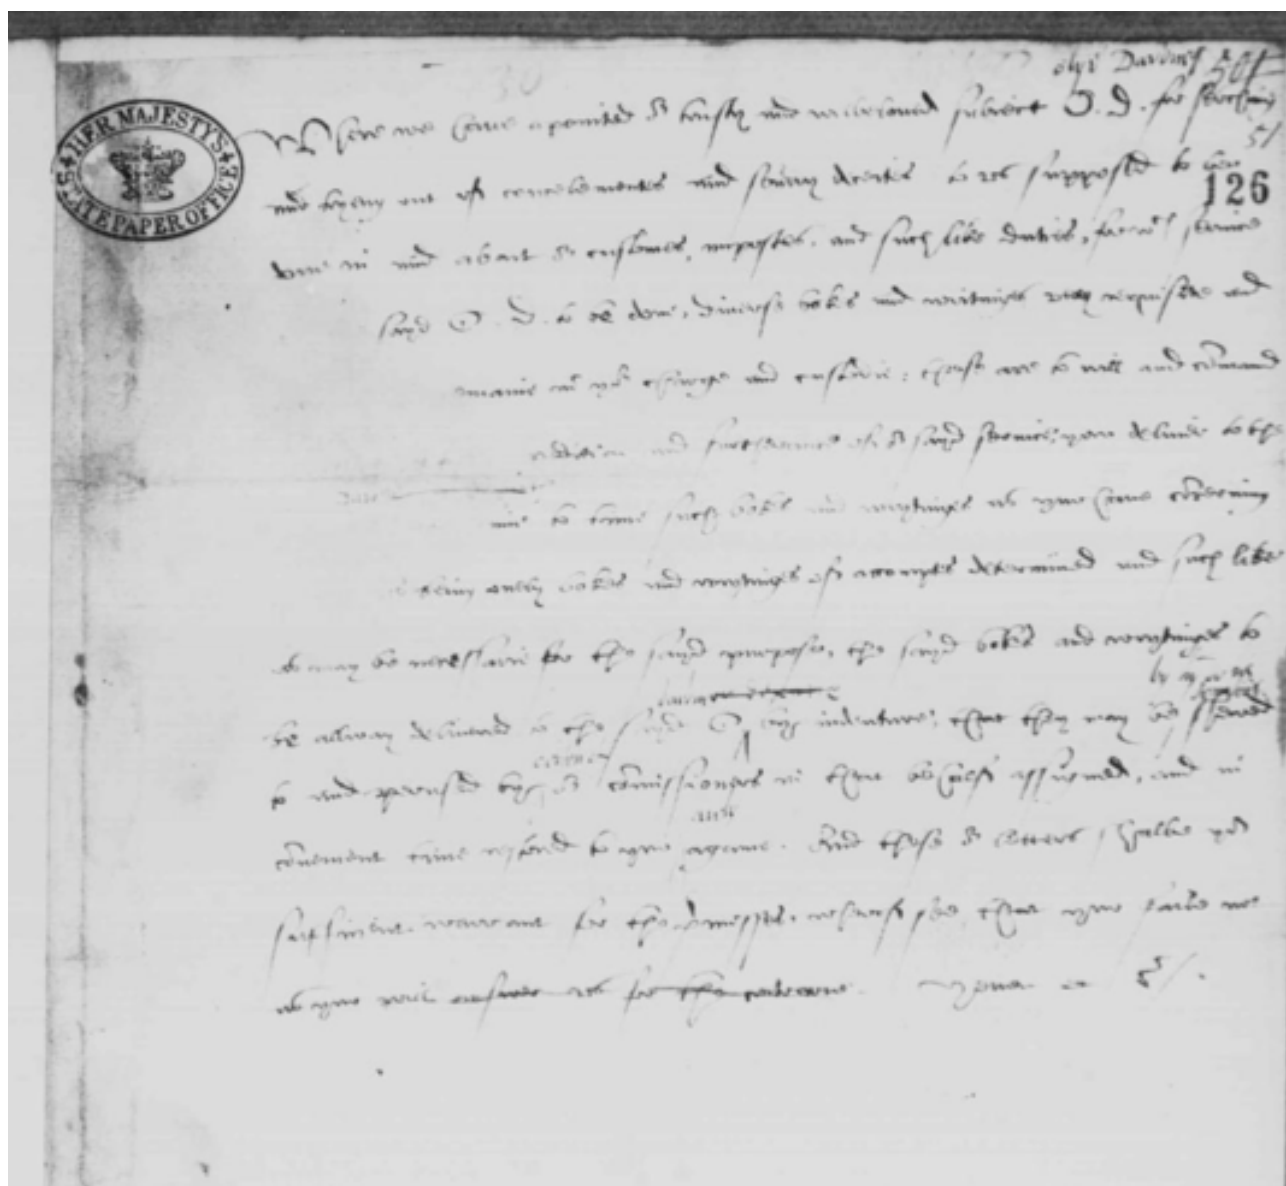 Olyv Dawbney
HER MAJESTY'S STATE PAPER OFFICE
51
126
Where we have apointed o trusty and welbeloved subiect O. D. for serching
and tryeng out of concelementes and deceites to us supposed to be
done in and about o customes, impostes, and such like duties, for service
sayd O. D. to be done, diverse bokes and writinges requisite and
in yo charge and custodie: these are to will and comand
and furtherance of o sayd service, you deliver to the
to tyme such bokes and wrytinges as you have concerning
being onely bokes and wrytinges of accomptes determined and such like
as may be necessarie for the sayd purpose, the sayd bokes and wrytinges to
be allway delivered to the sayd O by indenture, that they may be shewed
to and perused by o comissioners in that behalf assigned, and in
convenient time restored to you againe. And these o letters shalbe yo
sufficient warrant for the premisses. wherof se that you faile not
as you will answer us for the contrarie. Yeven